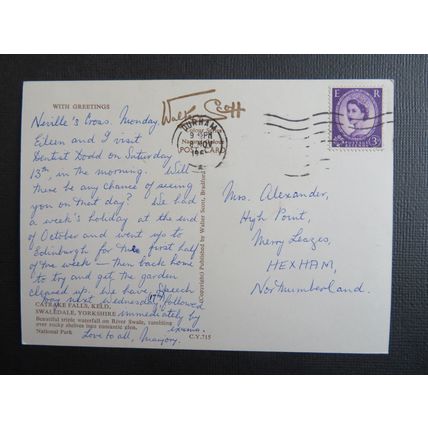 WITH GREETINGS
Walter Scott
Neville's Cross. Monday.
Eileen and I visit
Dentist Dodd on Saturday
13th, in the morning. Will
there be any chance of seeing
you on that day? We had
a week's holiday at the end
of October and went up to
Edinburgh for the first half
of the week – then back home
to try and get the garden
cleaned up. We have Speech
Day next Wednesday (17th) followed
immediately by
exams.
Love to all, Marjory.
CATRAKE FALLS, KELD,
SWALEDALE, YORKSHIRE
Beautiful triple waterfall on River Swale, tumbling
over rocky shelves into romantic glen.
National Park
C.Y.715
(Copyright) Published by Walter Scott, Bradford
POSTCARD
DURHAM
9 PM
8 NOV
A
E R
3D
Mrs. Alexander,
High Point,
Merry Leazes,
HEXHAM,
Northumberland.